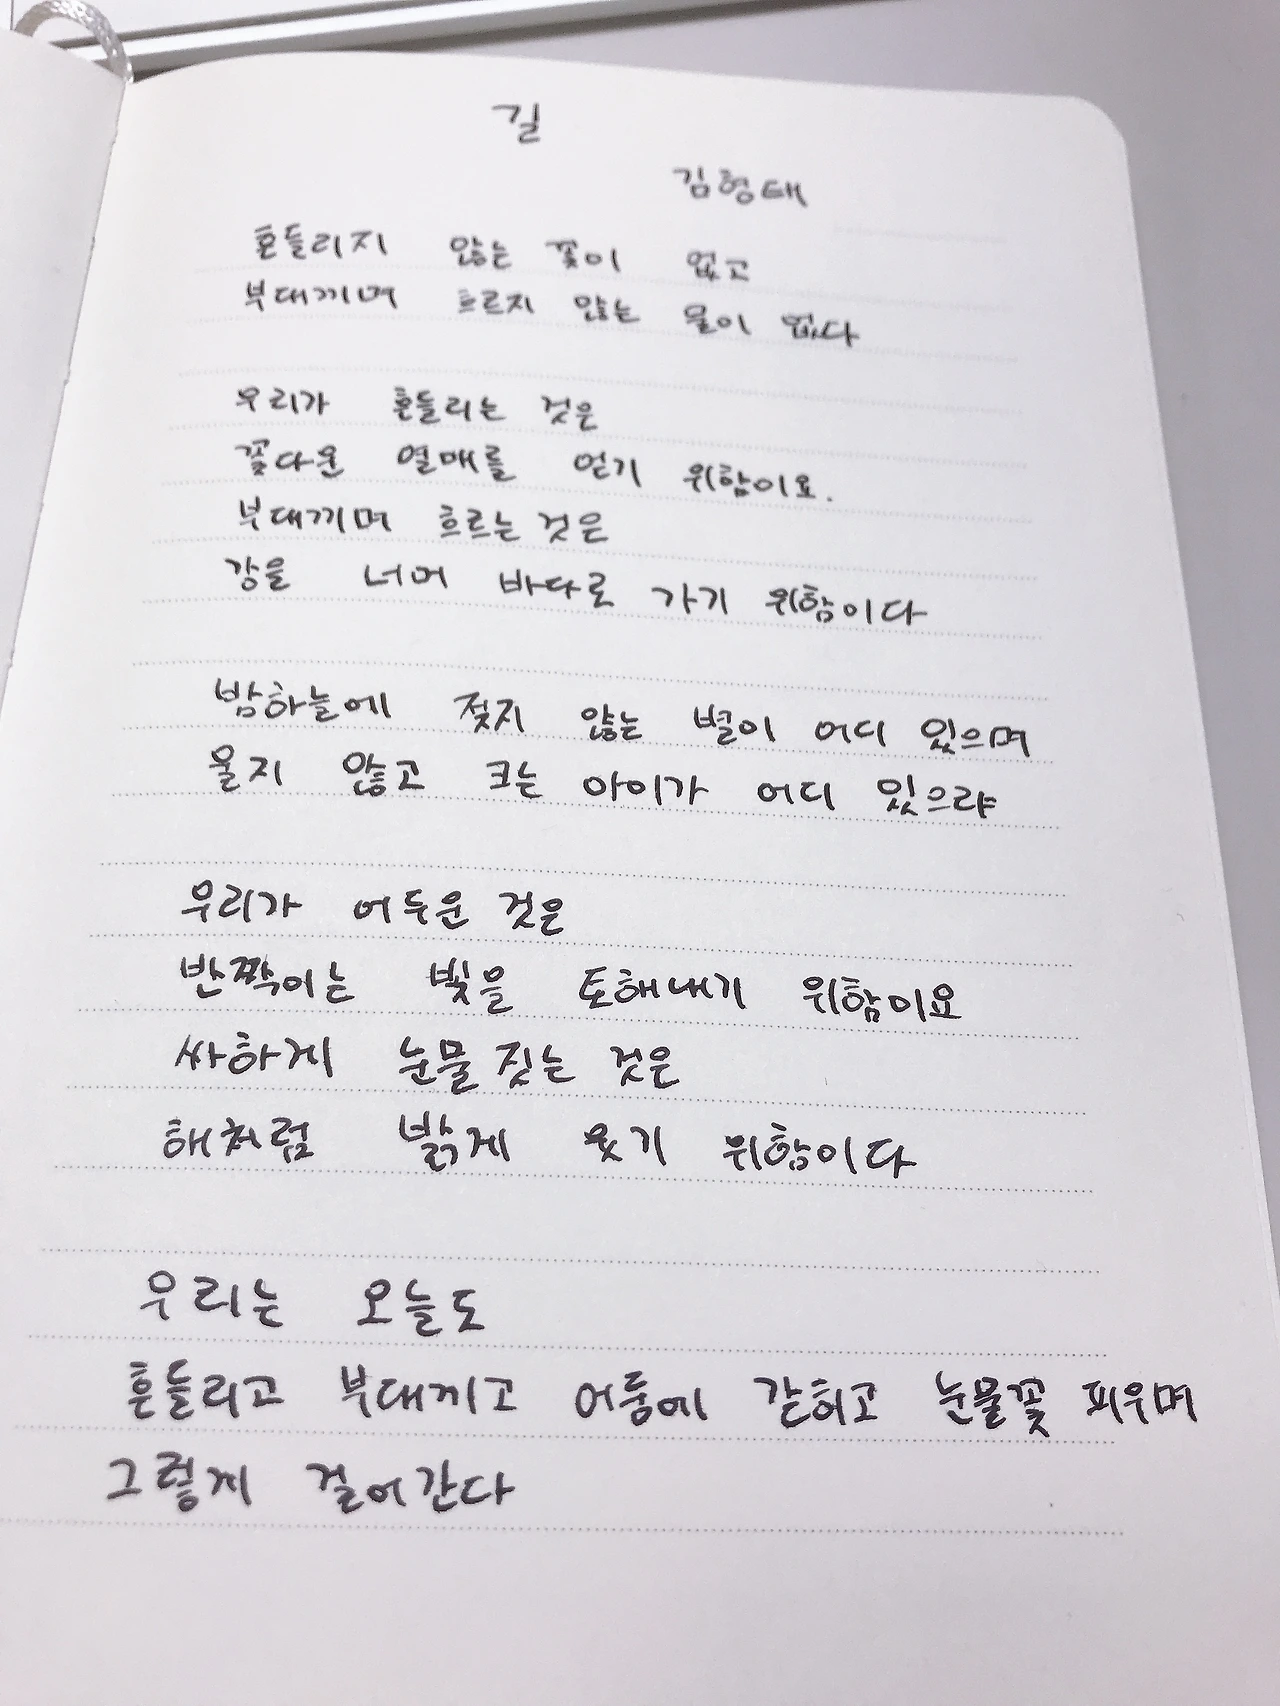 길
김형태
흔들리지 않는 꽃이 없고
부대끼며 흐르지 않는 물이 없다
우리가 흔들리는 것은
꽃다운 열매를 얻기 위함이요.
부대끼며 흐르는 것은
강을 너머 바다로 가기 위함이다
밤하늘에 젖지 않는 별이 어디 있으며
울지 않고 크는 아이가 어디 있으랴
우리가 어두운 것은
반짝이는 빛을 토해내기 위함이요
싸하게 눈물 짓는 것은
해처럼 밝게 웃기 위함이다
우리는 오늘도
흔들리고 부대끼고 어둠에 갇히고 눈물꽃 피우며
그렇게 걸어간다